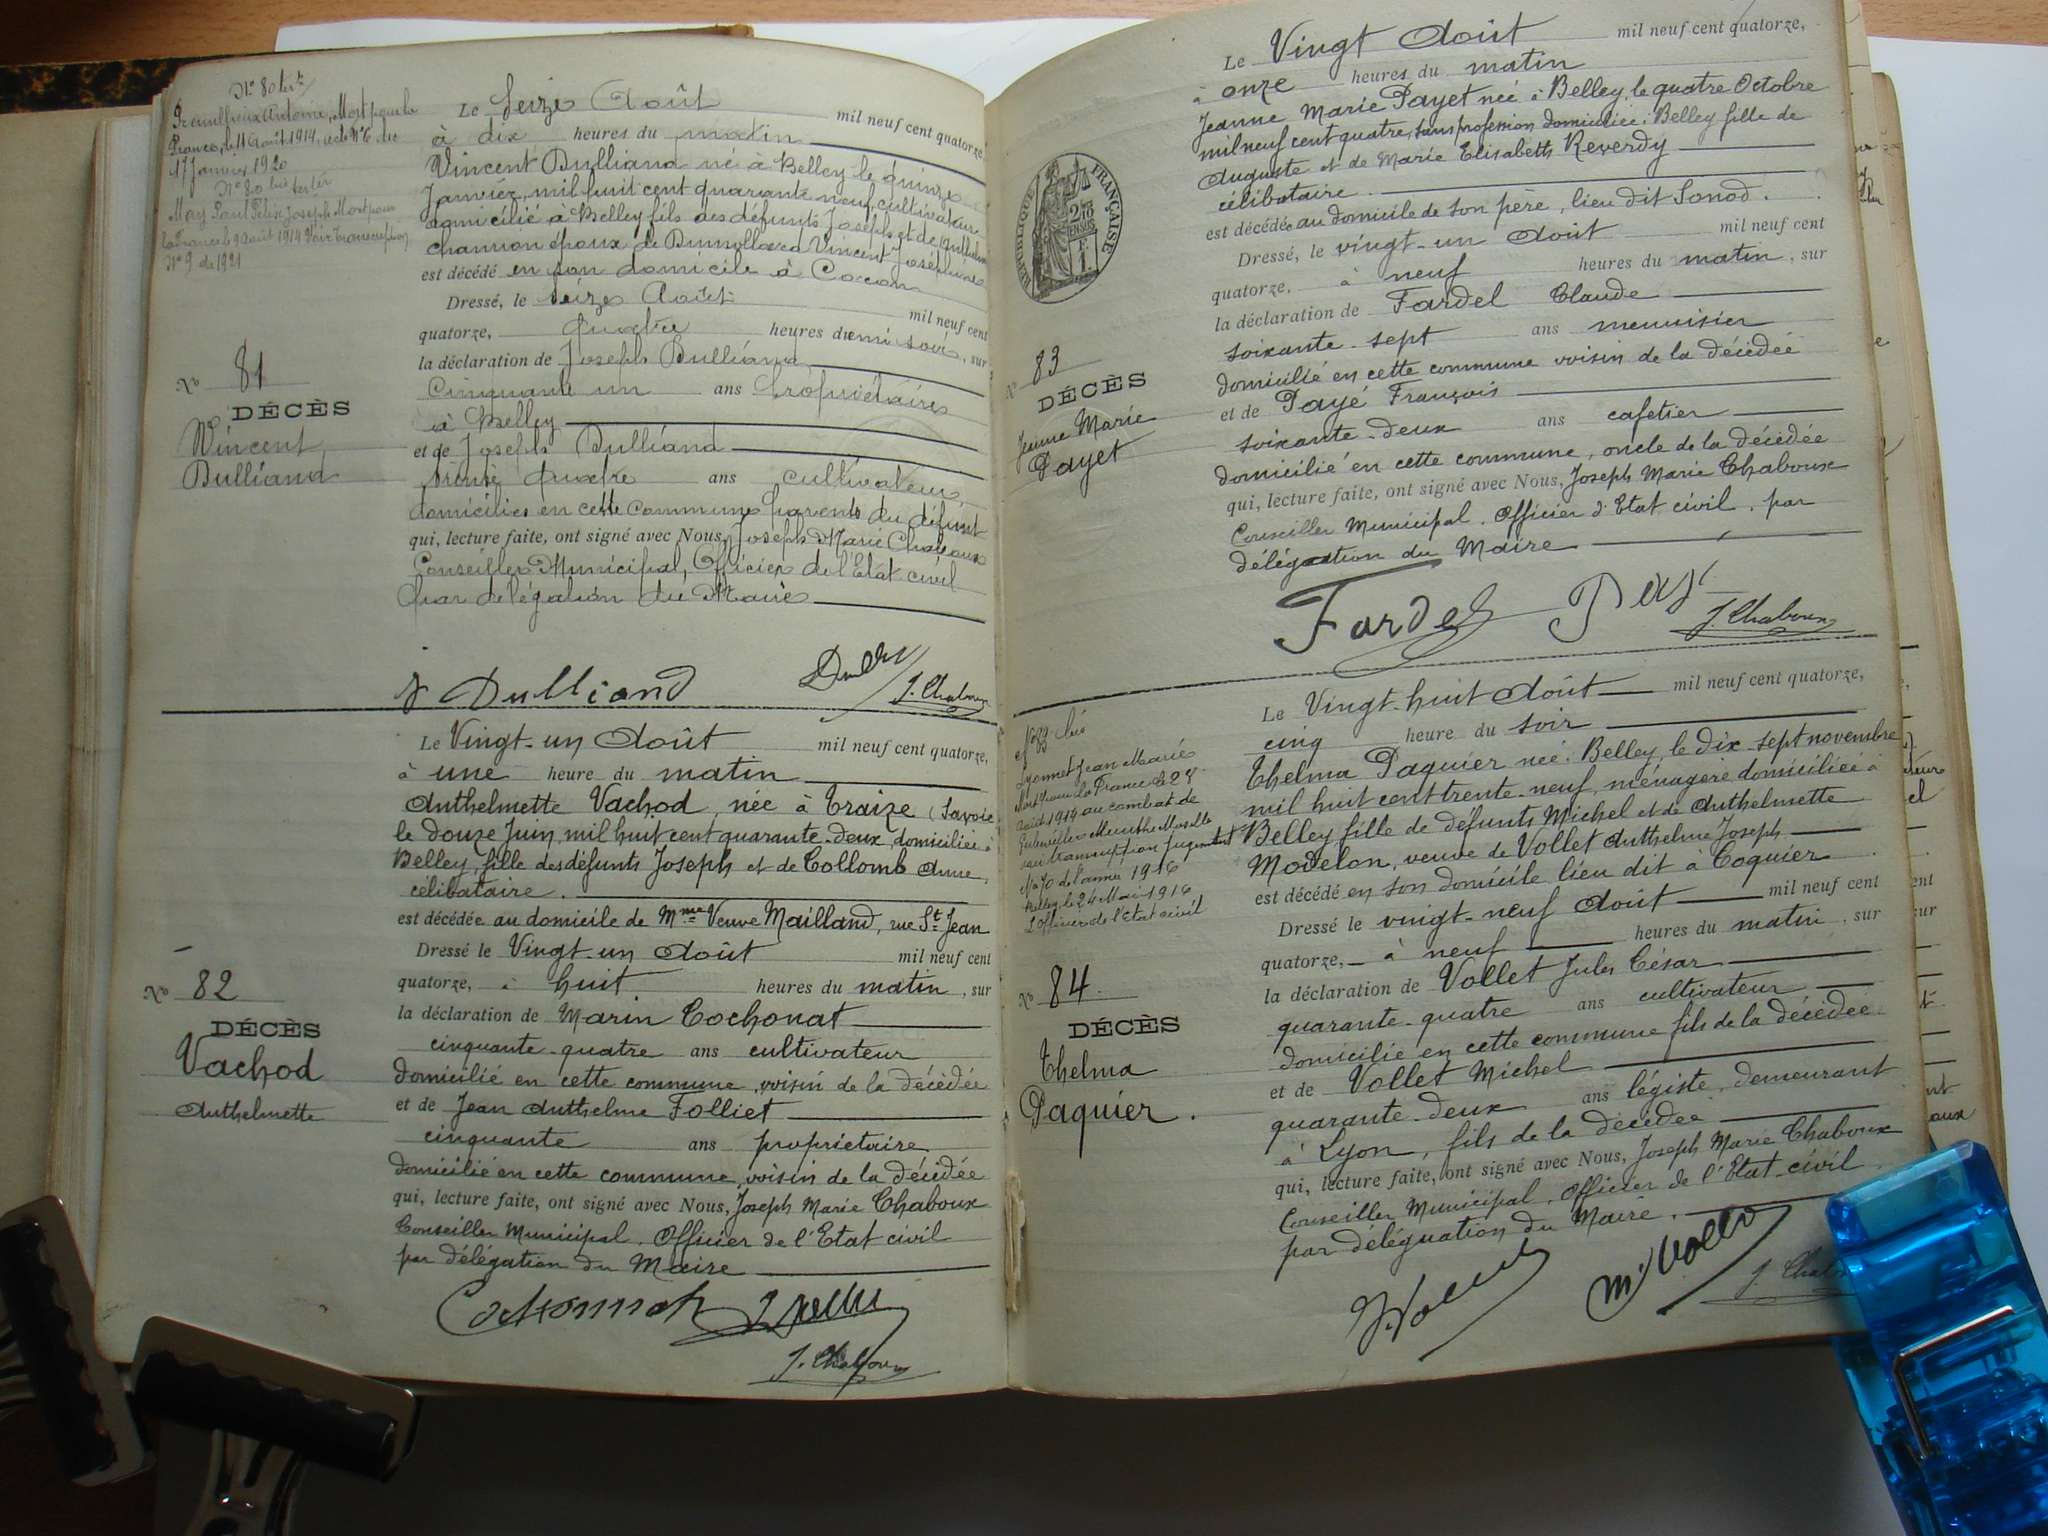 No 80 ter
Antoine, Mort pour la
France, le 11 Août 1914, acte No 6, du
17 Janvier 1920
No 80
May Paul Félix Joseph Mort pour
la France le 9 Août 1914 Voir transcription
No 9 de 1921
Le Seize Août mil neuf cent quatorze,
à dix heures du matin
Vincent Dulliand né à Belley le quinze
Janvier, mil huit cent quarante neuf, cultivateur
domicilié à Belley fils des défunts Joseph et de
époux de Vincent Joséphine
est décédé en son domicile à Coron
Dressé, le seize Août mil neuf cent
quatorze, quatre heures du soir, sur
la déclaration de Joseph Dulliand
Cinquante un ans Propriétaire
à Belley
et de Joseph Dulliand
trente quatre ans cultivateur
domiciliés en cette commune parents du défunt
qui, lecture faite, ont signé avec Nous, Joseph Marie Chaboux
Conseiller Municipal, Officier de l'Etat civil
par délégation du Maire
No 81
DÉCÈS
Vincent
Dulliand
Dulliand
J. Chaboux
Le Vingt-un Août mil neuf cent quatorze,
à une heure du matin
Anthelmette Vachod, née à Traize (Savoie
le douze Juin, mil huit cent quarante-deux, domiciliée à
Belley, fille des défunts Joseph et de Collomb Anne,
célibataire.
est décédée au domicile de Mme Veuve Mailland, rue St Jean
Dressé le Vingt-un Août mil neuf cent
quatorze, à huit heures du matin, sur
la déclaration de Marin Cochonat
cinquante-quatre ans cultivateur
domicilié en cette commune, voisin de la décédée
et de Jean Anthelme Folliet
cinquante ans propriétaire
domicilié en cette commune, voisin de la décédée
qui, lecture faite, ont signé avec Nous, Joseph Marie Chaboux
Conseiller Municipal, Officier de l'Etat civil
par délégation du Maire
No 82
DÉCÈS
Vachod
Anthelmette
J. Chaboux
Le Vingt Août mil neuf cent quatorze,
à onze heures du matin
Jeanne Marie Payet née à Belley, le quatre Octobre
mil neuf cent quatre, sans profession domiciliée à Belley fille de
Auguste et de Marie Elisabeth Reverdy
célibataire.
est décédée au domicile de son père, lieu dit Sonod.
Dressé, le vingt-un Août mil neuf cent
quatorze, à neuf heures du matin, sur
la déclaration de Fardel Claude
soixante-sept ans menuisier
domicilié en cette commune voisin de la décédée
et de Payé François
soixante-deux ans cafetier
domicilié en cette commune, oncle de la décédée
qui, lecture faite, ont signé avec Nous, Joseph Marie Chaboux
Conseiller Municipal. Officier d'Etat civil, par
délégation du Maire
RÉPUBLIQUE FRANÇAISE
No 83
DÉCÈS
Jeanne Marie
Payet
Fardel
J. Chaboux
Lyonnet Jean Marie
Mort pour la France le 28
Août 1914 au combat de
Meurthe Moselle
transcription jugement
No 70 de l'année 1916
Belley, le 24 Mai 1916
L'Officier de l'Etat civil
Le Vingt-huit Août mil neuf cent quatorze,
cinq heure du soir
Thelma Paquier née à Belley, le dix-sept novembre
mil huit cent trente-neuf, ménagère domiciliée à
Belley, fille de défunts Michel et de Anthelmette
Modelon, veuve de Vollet Anthelme Joseph
est décédé en son domicile lieu dit à Coquier
Dressé le vingt-neuf Août mil neuf cent
quatorze, à neuf heures du matin, sur
la déclaration de Vollet Jules César
quarante-quatre ans cultivateur
domicilié en cette commune fils de la décédée
et de Vollet Michel
quarante-deux ans légiste, demeurant
à Lyon, fils de la décédée
qui, lecture faite, ont signé avec Nous, Joseph Marie Chaboux
Conseiller Municipal. Officier de l'Etat civil,
par délégation du Maire.
No 84
DÉCÈS
Thelma
Paquier.